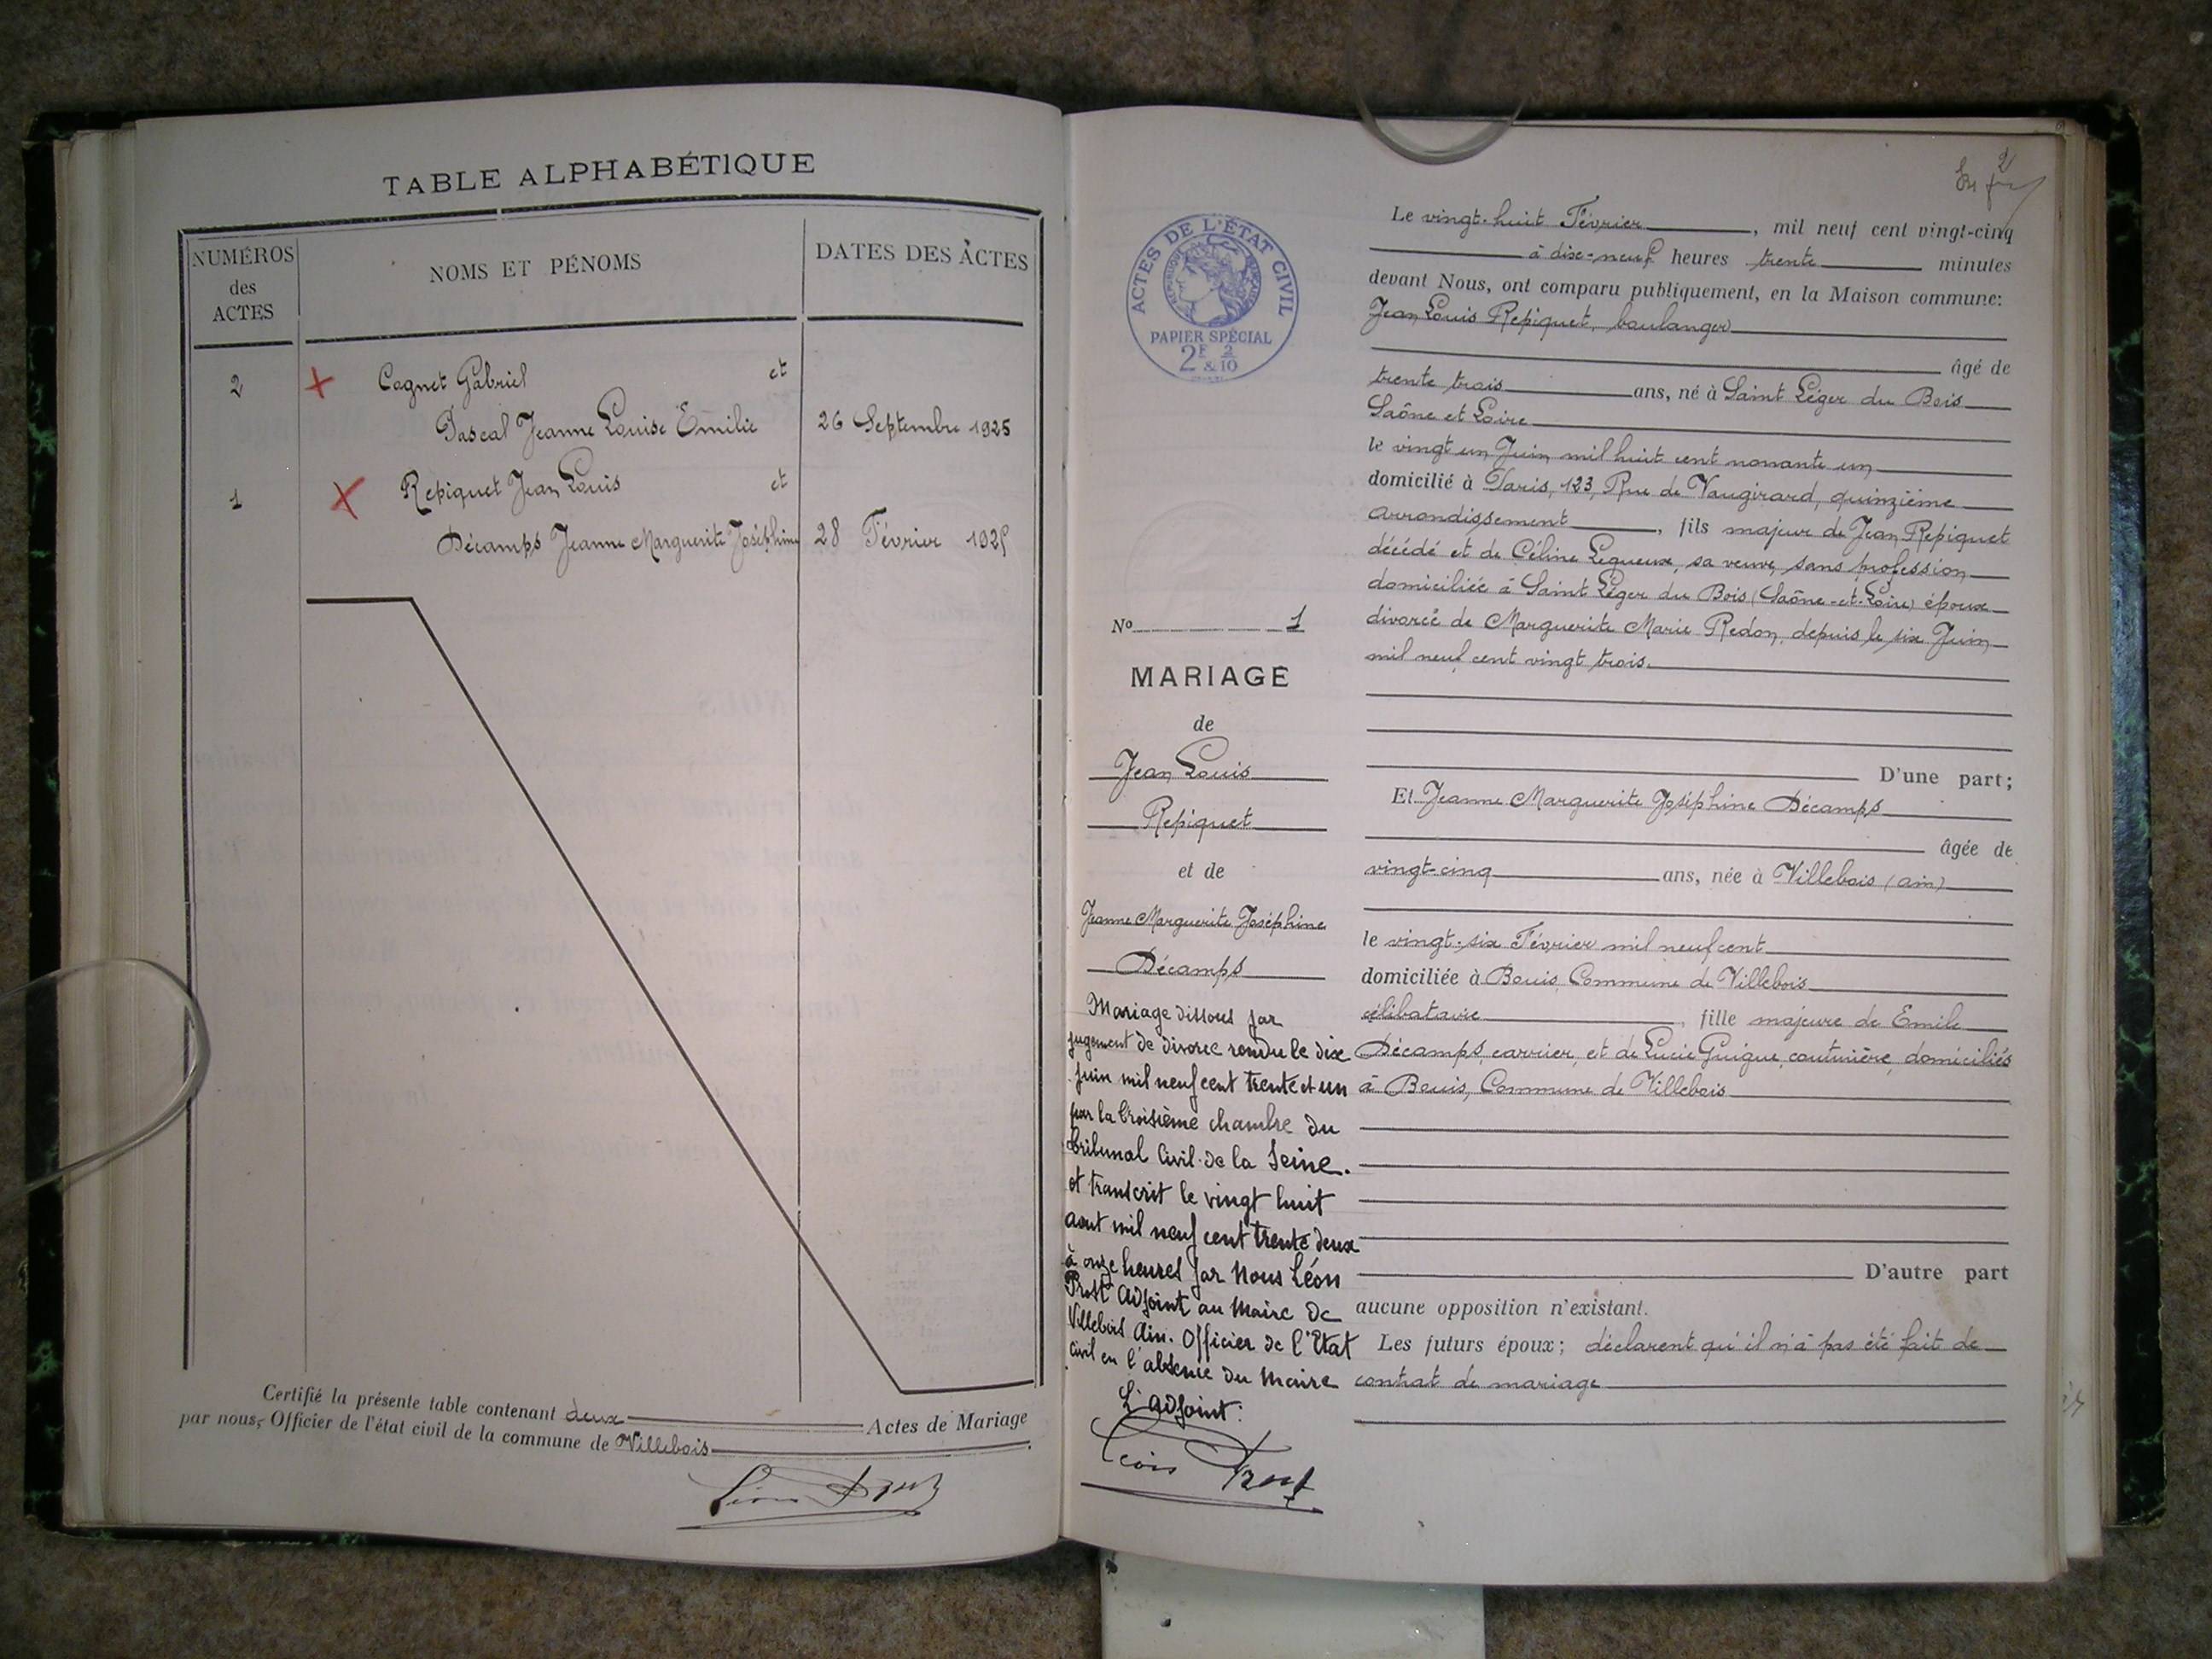 TABLE ALPHABÉTIQUE
NUMÉROS
des
ACTES
NOMS ET PÉNOMS
DATES DES ACTES
2
Cagnet Gabriel et
Pascal Jeanne Louise Emilie 26 Septembre 1925
1
Repiquet Jean Louis et
Décamps Jeanne Marguerite Joséphine 28 Février 1925
Certifié la présente table contenant deux Actes de Mariage
par nous, Officier de l'état civil de la commune de Villebois
Léon Prost
2
ACTES DE L'ÉTAT CIVIL
PAPIER SPÉCIAL
2F 2
& 10
No 1
MARIAGE
de
Jean Louis
Repiquet
et de
Jeanne Marguerite Joséphine
Décamps
Mariage dissous par
jugement de divorce rendu le dix
juin mil neuf cent trente et un
par la troisième chambre du
tribunal Civil de la Seine.
et transcrit le vingt huit
aout mil neuf cent trente deux
à onze heures par Nous Léon
Prost adjoint au Maire de
Villebois Ain. Officier de l'Etat
civil en l'absence du Maire
L'adjoint:
Léon Prost
Le vingt-huit Février, mil neuf cent vingt-cinq
à dix-neuf heures trente minutes
devant Nous, ont comparu publiquement, en la Maison commune:
Jean Louis Repiquet, boulanger
âgé de
trente trois ans, né à Saint Léger du Bois
Saône et Loire
le vingt un Juin mil huit cent nonante un
domicilié à Paris, 123, Rue de Vaugirard, quinzième
arrondissement, fils majeur de Jean Repiquet
décédé et de Céline Lequeux, sa veuve, sans profession
domiciliée à Saint Léger du Bois (Saône-et-Loire) époux
divorcé de Marguerite Marie Redon, depuis le six Juin
mil neuf cent vingt trois.
D'une part;
Et Jeanne Marguerite Joséphine Décamps
âgée de
vingt-cinq ans, née à Villebois (ain)
le vingt-six Février mil neuf cent
domiciliée à Bouis, Commune de Villebois
célibataire, fille majeure de Emile
Décamps, carrier, et de Lucie Guigue, couturière, domiciliés
à Bouis, Commune de Villebois
D'autre part
aucune opposition n'existant.
Les futurs époux; déclarent qu'il n'a pas été fait de
contrat de mariage